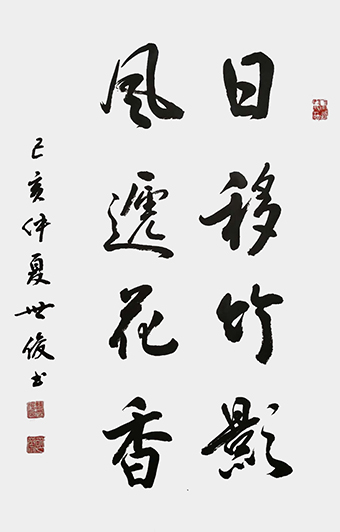 日移竹影
風遞花香
己亥仲夏世俊书